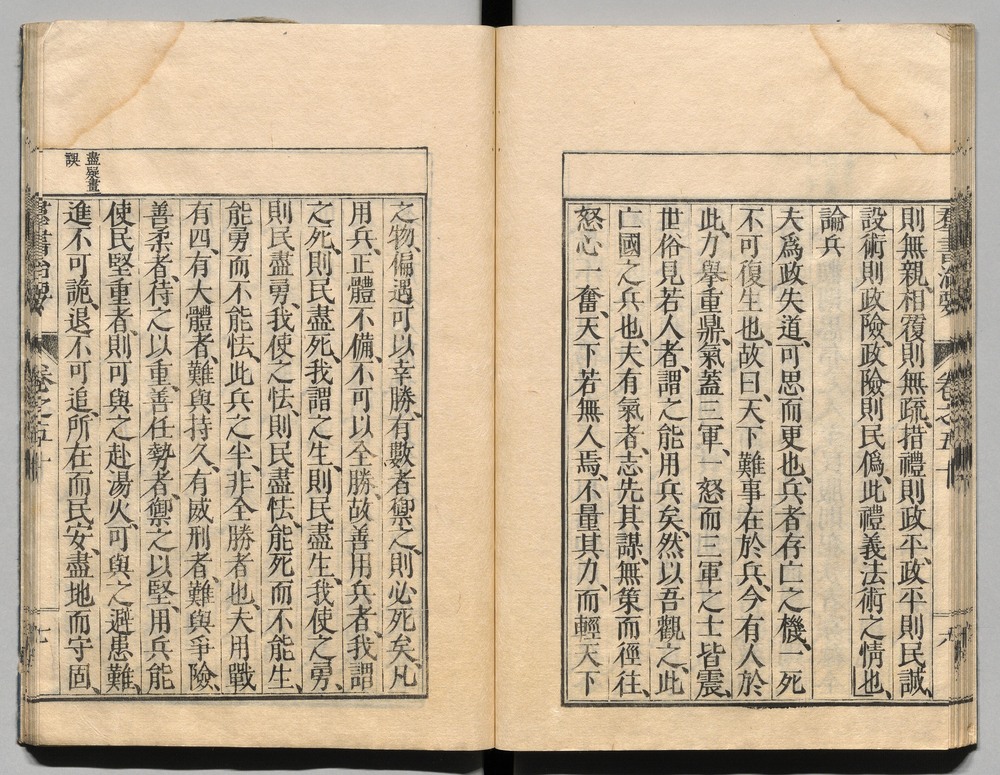 羣書治要 卷之五十 八
則無親、相覆則無疏、措禮則政平、政平則民誠、
設術則政險、政險則民僞、此禮義法術之情也、
論兵
夫爲政失道、可思而更也、兵者存亡之機、一死
不可復生也、故曰、天下難事在於兵、今有人於
此、力舉重鼎、氣蓋三軍、一怒而三軍之士皆震、
世俗見若人者、謂之能用兵矣、然以吾觀之、此
亡國之兵也、夫有氣者、志先其謀、無策而徑往、
怒心一奮、天下若無人焉、不量其力、而輕天下
之物、偏遇可以幸勝、有數者禦之、則必死矣、凡
用兵、正體不備、不可以全勝、故善用兵者、我謂
之死、則民盡死、我謂之生、則民盡生、我使之勇、
則民盡勇、我使之怯、則民盡怯、能死而不能生、
能勇而不能怯、此兵之半、非全勝者也、夫用戰
有四、有大體者、難與持久、有威刑者、難與爭險、
善柔者、待之以重、善任勢者、禦之以堅、用兵能
使民堅重者、則可與之赴湯火、可與之避患難、
進不可詭、退不可追、所在而民安、盡地而守固、
盡疑畫
誤
羣書治要 卷之五十 七